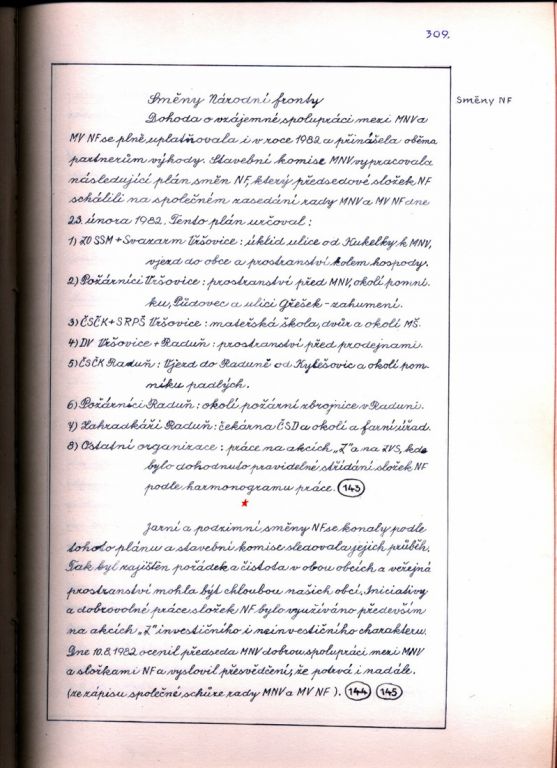 309.
Směny NF
Směny Národní fronty
Dohoda o vzájemné spolupráci mezi MNV a
MV NF se plně uplatňovala i v roce 1982 a přinášela oběma
partnerům výhody. Stavební komise MNV vypracovala
následující plán směn NF, který předsedové složek NF
schálili na společném zasedání rady MNV a MV NF dne
23. února 1982. Tento plán určoval:
1) ZO SSM + Svazarm Vršovice: úklid ulice od Kukelky k MNV,
vjezd do obce a prostranství kolem hospody.
2) Požárníci Vršovice: prostranství před MNV, okolí pomní-
ku, Půdovec a ulici Gřešek - zahumení.
3) ČSČK + SRPŠ Vršovice: mateřská škola, dvůr a okolí MŠ.
4) DV Vršovice + Raduň: prostranství před prodejnami.
5) ČSČK Raduň: Vjezd do Raduně od Kylešovic a okolí pom-
níku padlých.
6) Požárníci Raduň: okolí požární zbrojnice v Raduni.
7) Zahrádkáři Raduň: čekárna ČSD a okolí a farní úřad.
8) Ostatní organizace: práce na akcích „Z" a na ZVS, kde
bylo dohodnuto pravidelné střídání složek NF
podle harmonogramu práce. 143
Jarní a podzimní směny NF se konaly podle
tohoto plánu a stavební komise sledovala jejich průběh.
Tak byl zajištěn pořádek a čistota v obou obcích a veřejná
prostranství mohla být chloubou našich obcí. Iniciativy
a dobrovolné práce složek NF bylo využíváno především
na akcích „Z" investičního i neinvestičního charakteru.
Dne 10.8.1982 ocenil předseda MNV dobrou spolupráci mezi MNV
a složkami NF a vyslovil přesvědčení, že potrvá i nadále.
(ze zápisu společné schůze rady MNV a MV NF). 144 145